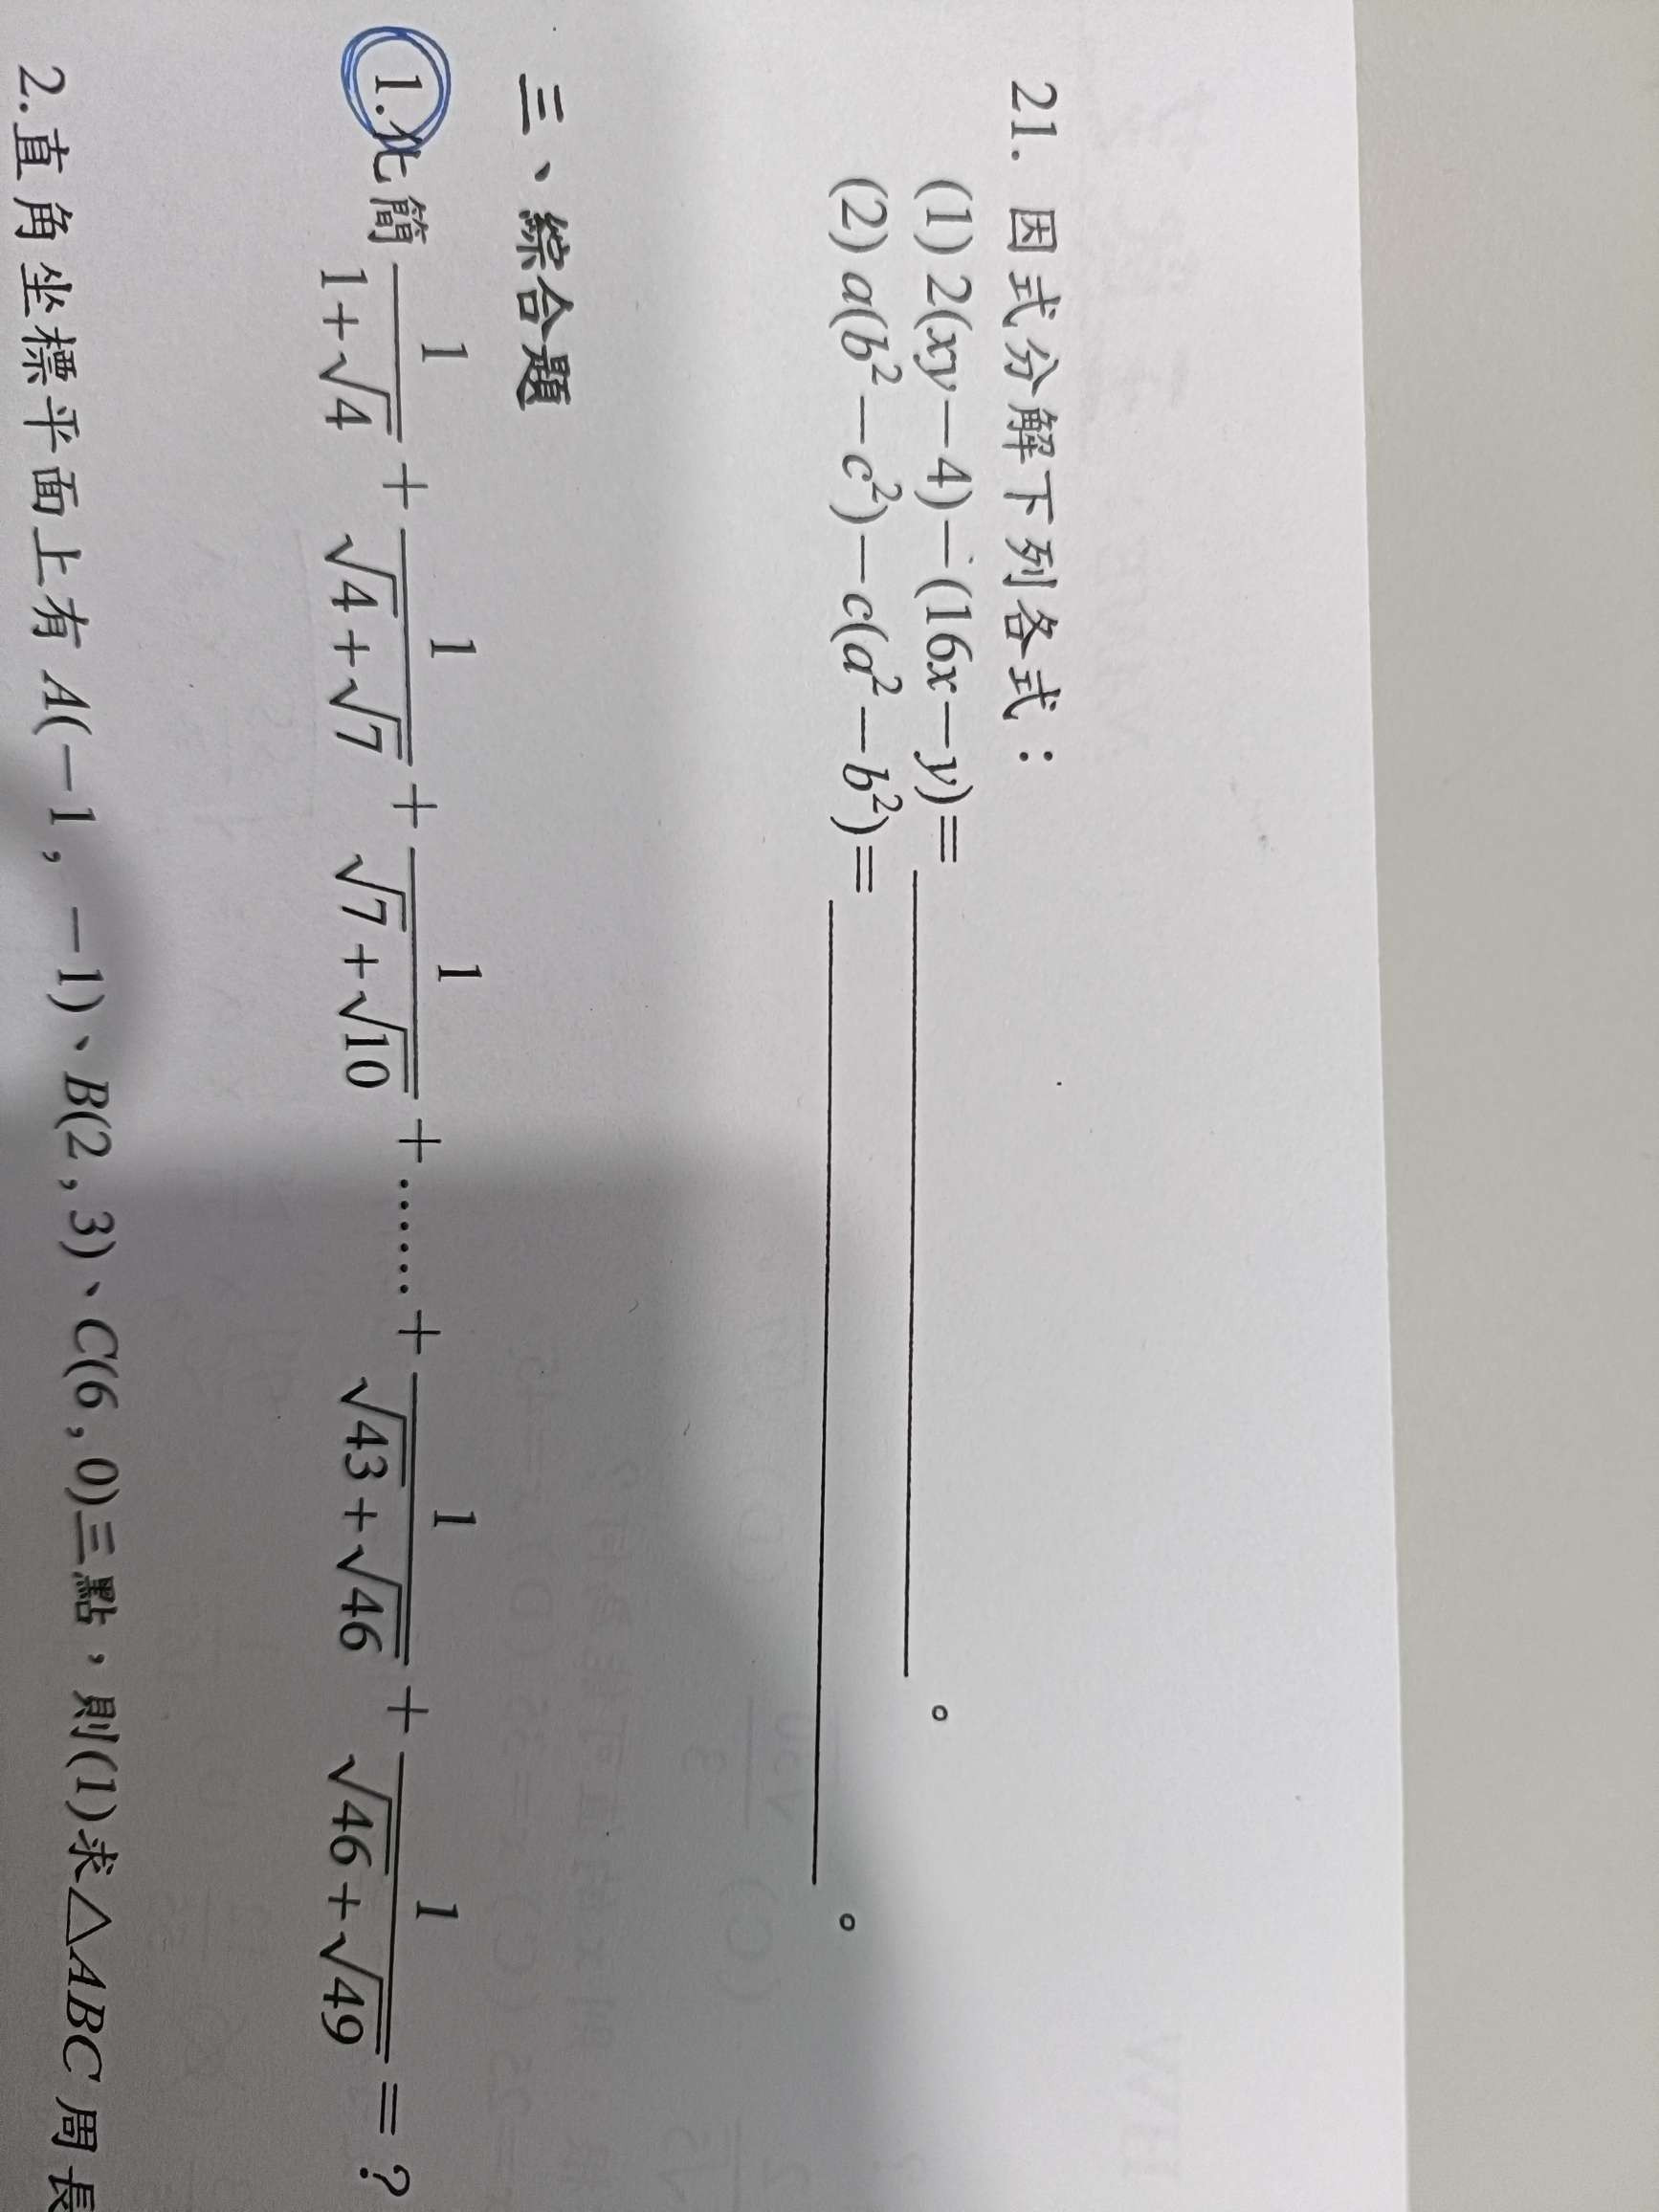 21. 因式分解下列各式：
(1) 2(xy－4)－(16x－y)=＿＿＿＿＿＿＿＿。
(2) a(b²－c²)－c(a²－b²)=＿＿＿＿＿＿＿＿。
三、綜合題
1.化簡 1/(1+√4) + 1/(√4+√7) + 1/(√7+√10) +……+ 1/(√43+√46) + 1/(√46+√49) =？
2.直角坐標平面上有 A(－1，－1)、B(2，3)、C(6，0)三點，則(1)求△ABC 周長